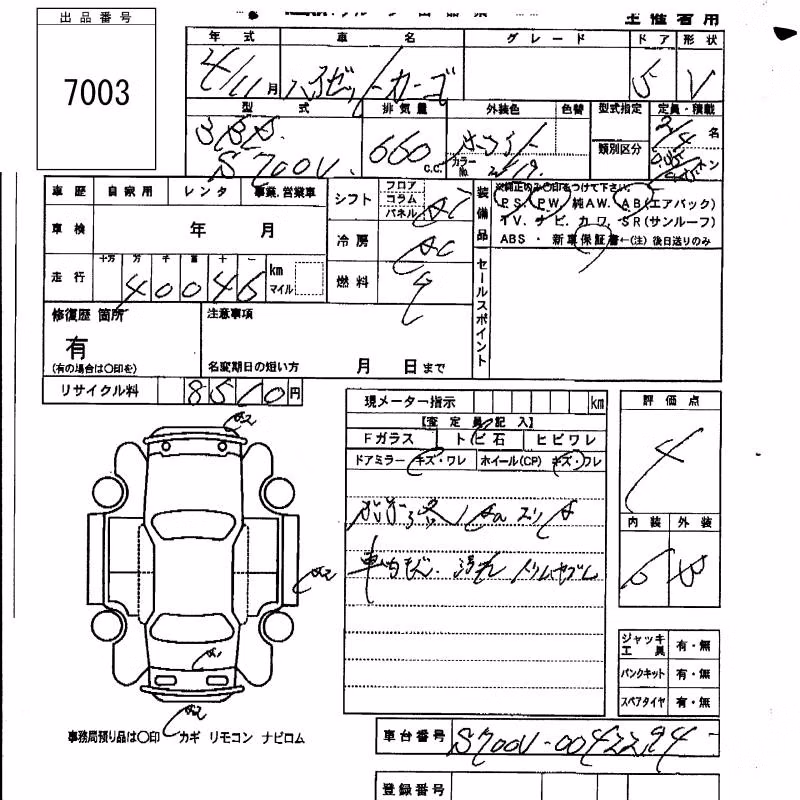 主催者用
出品番号
7003
年式 車名 グレード ドア 形状
4/11月 ハイゼットカーゴ 5 V
型式 排気量 外装色 色替 型式指定 定員・積載
3BD- 660 c.c. カラーNo. 類別区分 2/4 名
S700V トン
車歴 自家用 レンタ 事業.営業車 シフト フロア コラム パネル AT
装備品 ※純正のみ〇印をつけて下さい
PS. PW. 純AW. AB(エアバック)
TV. ナビ. カワ. SR(サンルーフ)
ABS ・ 新車保証書←(注) 後日送りのみ
車検 年 月 冷房 AC
走行 十万 万 千 百 十 一 km マイル 燃料
40046
セールスポイント
修復歴 箇所 注意事項
有
(有の場合は〇印を) 名変期日の短い方 月 日まで
リサイクル料 8510円
現メーター指示 km
評価点
【査定員記入】
Fガラス トビ石 ヒビワレ
ドアミラー キズ・ワレ ホイール(CP) キズ・ワレ
4
内装 外装
A2
A2
A1
A2
ジャッキ工具 有・無
パンクキット 有・無
スペアタイヤ 有・無
事務局預り品は〇印 カギ リモコン ナビロム
車台番号 S700V-0042294
登録番号